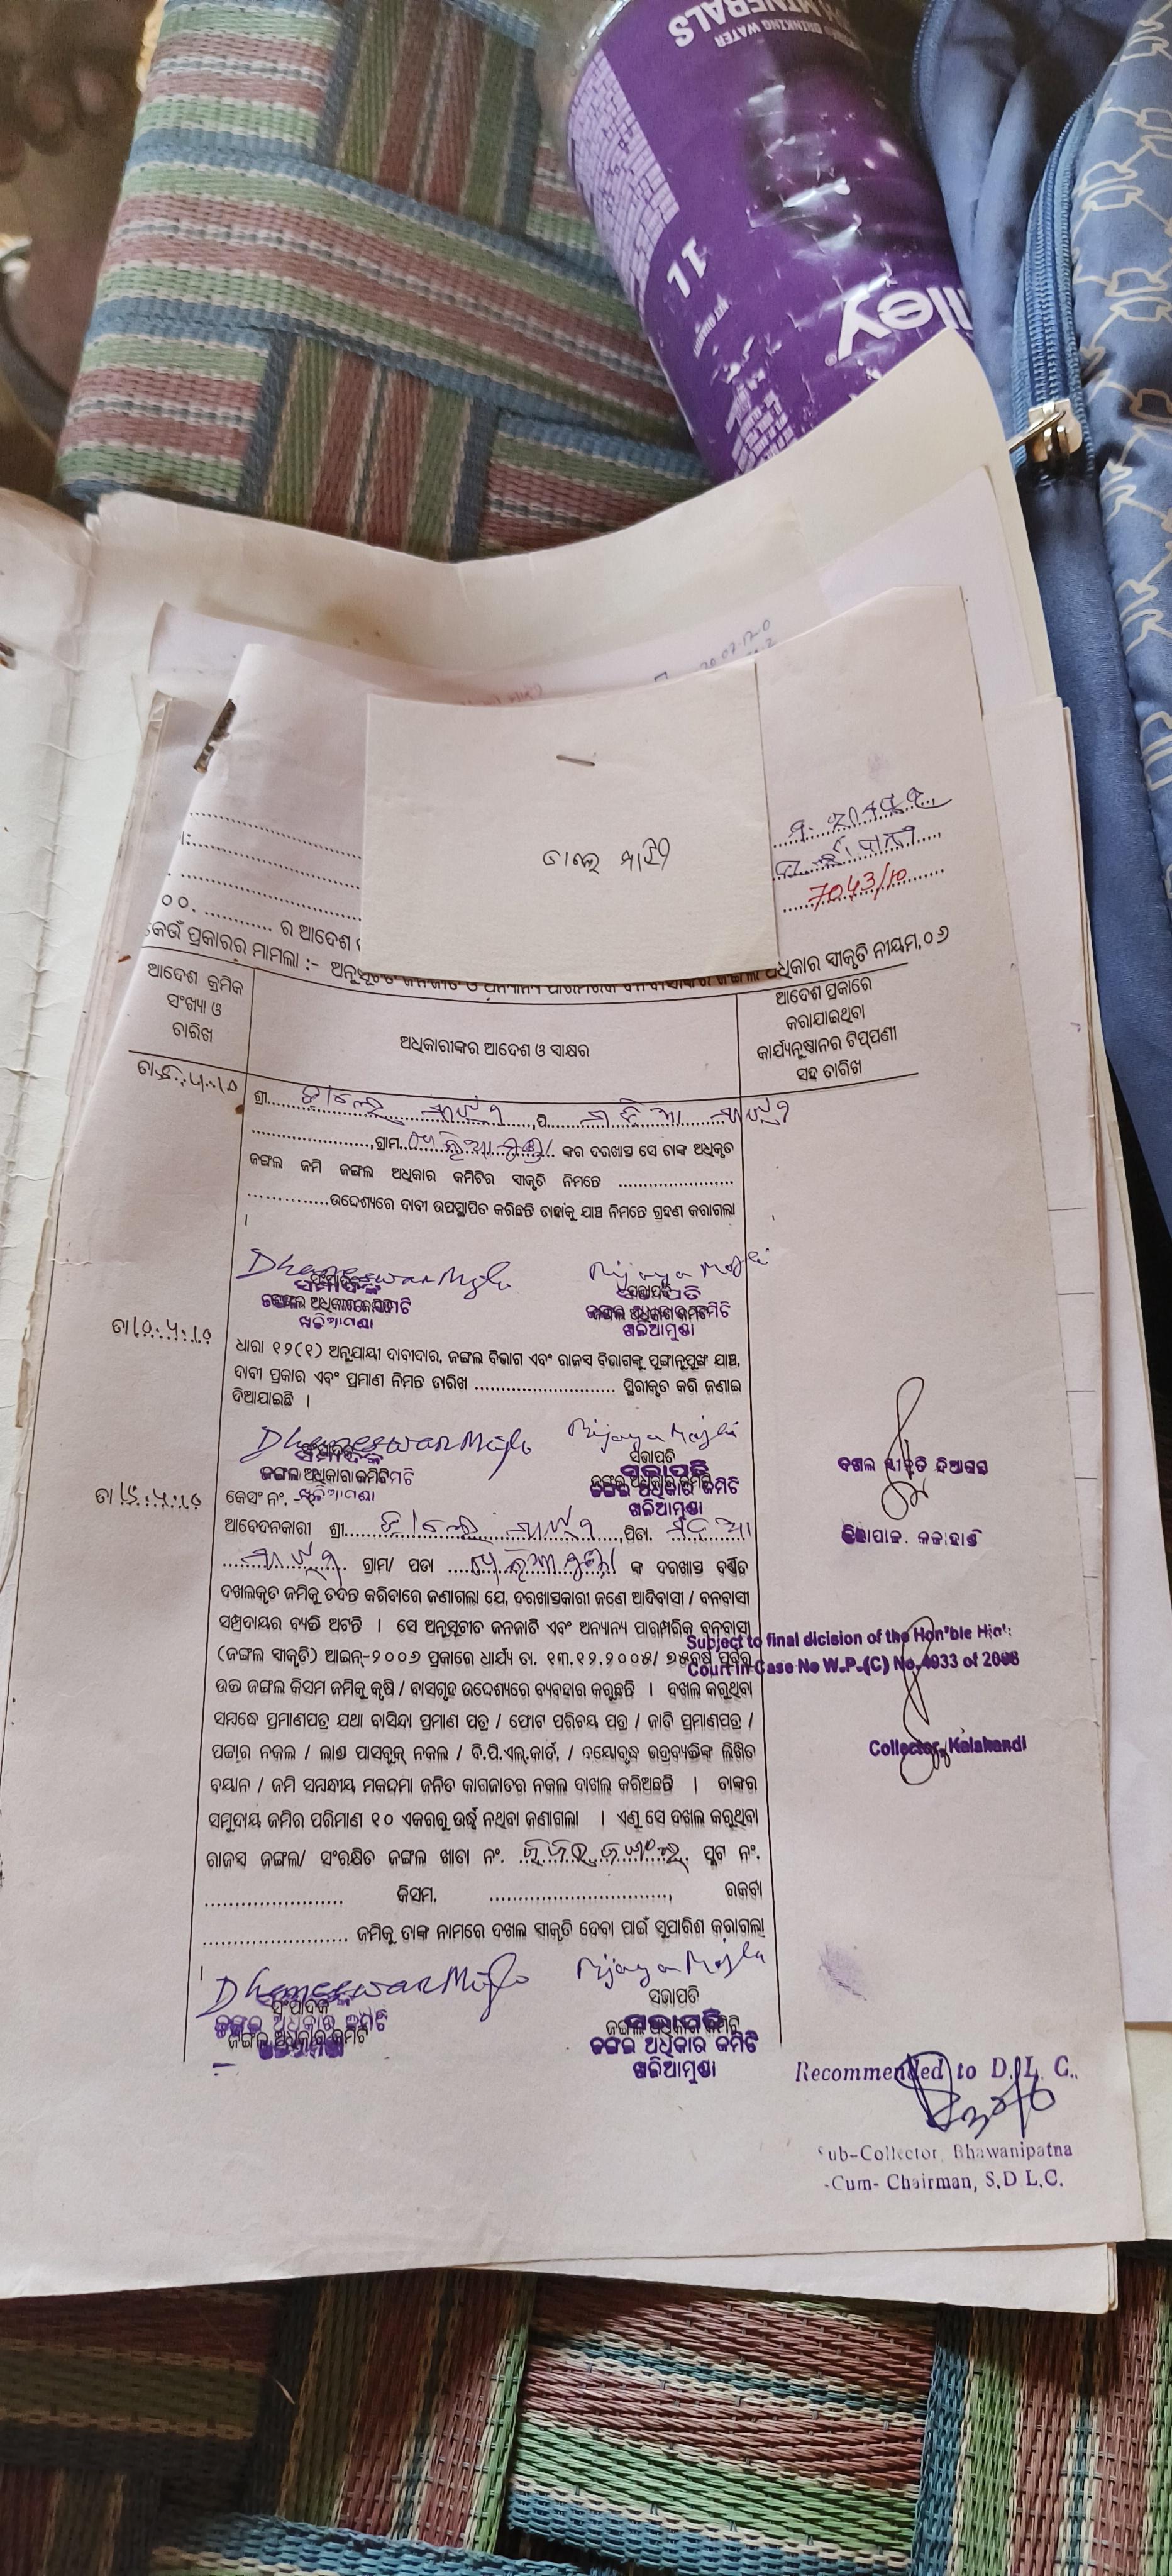 MINERALS
DRINKING WATER
1L
lley
7043/10
୦୦. ............ ର ଆଦେଶ
କେଉଁ ପ୍ରକାରର ମାମଲା :- ଅନୁସୂଚିତ ଜନଜାତି ଓ ଅନ୍ୟାନ୍ୟ ପାରମ୍ପରିକ ବନବାସୀଙ୍କର ଜଙ୍ଗଲ ଅଧିକାର ସ୍ୱୀକୃତି ନୀୟମ,୦୬
ଆଦେଶ କ୍ରମିକ
ସଂଖ୍ୟା ଓ
ତାରିଖ
ଅଧିକାରୀଙ୍କର ଆଦେଶ ଓ ସାକ୍ଷର
ଆଦେଶ ପ୍ରକାରେ
କରାଯାଇଥିବା
କାର୍ଯ୍ୟନୁଷ୍ଠାନର ଟିପ୍ପଣୀ
ସହ ତାରିଖ
ଶ୍ରୀ ମାଝୀ ,ପି ମାଝୀ
.....................,ଗ୍ରାମ. ଖଲିଆମୁଣ୍ଡା ଙ୍କର ଦରଖାସ୍ତ ସେ ତାଙ୍କ ଅଧିକୃତ
ଜଙ୍ଗଲ ଜମି ଜଙ୍ଗଲ ଅଧିକାର କମିଟିର ସ୍ୱୀକୃତି ନିମନ୍ତେ ........................
..............ଉଦ୍ଦେଶ୍ୟରେ ଦାବୀ ଉପସ୍ଥାପିତ କରିଛନ୍ତି ତାହାକୁ ଯାଞ୍ଚ ନିମନ୍ତେ ଗ୍ରହଣ କରାଗଲା
।
Dhaneswar Majhi Bijaya Majhi
ସଂପାଦକ ସଭାପତି
ଜଙ୍ଗଲ ଅଧିକାର କମିଟି ଜଙ୍ଗଲ ଅଧିକାର କମିଟି
ଖଲିଆମୁଣ୍ଡା ଖଲିଆମୁଣ୍ଡା
ଧାରା ୧୨(୧) ଅନୁଯାୟୀ ଦାବୀଦାର, ଜଙ୍ଗଲ ବିଭାଗ ଏବଂ ରାଜସ୍ୱ ବିଭାଗଙ୍କୁ ପୁଙ୍ଖାନୁପୁଙ୍ଖ ଯାଞ୍ଚ,
ଦାବୀ ପ୍ରକାର ଏବଂ ପ୍ରମାଣ ନିମନ୍ତେ ତାରିଖ ............................ ସ୍ଥିରୀକୃତ କରି ଜଣାଇ
ଦିଆଯାଇଛି ।
Dhaneswar Majhi Bijaya Majhi
ସଂପାଦକ ସଭାପତି
ଜଙ୍ଗଲ ଅଧିକାର କମିଟି ଜଙ୍ଗଲ ଅଧିକାର କମିଟି
ଖଲିଆମୁଣ୍ଡା ଖଲିଆମୁଣ୍ଡା
ଦଖଲ ସ୍ୱୀକୃତି ଦିଆଗଲା
ଜିଲାପାଳ, କଳାହାଣ୍ଡି
କେସଂ ନଂ. -
ଆବେଦନକାରୀ ଶ୍ରୀ ମାଝୀ ,ପିତା.
ମାଝୀ ଗ୍ରାମ/ ପତା ଖଲିଆମୁଣ୍ଡା ଙ୍କ ଦରଖାସ୍ତ ବର୍ଣ୍ଣିତ
ଦଖଲକୃତ ଜମିକୁ ତଦନ୍ତ କରିବାରେ ଜଣାଗଲା ଯେ, ଦରଖାସ୍ତକାରୀ ଜଣେ ଆଦିବାସୀ / ବନବାସୀ
ସମ୍ପ୍ରଦାୟର ବ୍ୟକ୍ତି ଅଟନ୍ତି । ସେ ଅନୁସୂଚୀତ ଜନଜାତି ଏବଂ ଅନ୍ୟାନ୍ୟ ପାରମ୍ପରିକ ବନବାସୀ
(ଜଙ୍ଗଲ ସ୍ୱୀକୃତି) ଆଇନ୍-୨୦୦୬ ପ୍ରକାରେ ଧାର୍ଯ୍ୟ ତା. ୧୩.୧୨.୨୦୦୫/ ୭୫ବର୍ଷ ପୂର୍ବରୁ
ଉକ୍ତ ଜଙ୍ଗଲ କିସମ ଜମିକୁ କୃଷି / ବାସଗୃହ ଉଦ୍ଦେଶ୍ୟରେ ବ୍ୟବହାର କରୁଛନ୍ତି । ଦଖଲ କରୁଥିବା
ସମ୍ବନ୍ଧେ ପ୍ରମାଣପତ୍ର ଯଥା ବାସିନ୍ଦା ପ୍ରମାଣ ପତ୍ର / ଫୋଟ ପରିଚୟ ପତ୍ର / ଜାତି ପ୍ରମାଣପତ୍ର /
ପଟ୍ଟାର ନକଲ / ଲାଣ୍ଡ ପାସବୁକ୍ ନକଲ / ବି.ପି.ଏଲ୍.କାର୍ଡ, / ବୟୋବୃଦ୍ଧ ଭଦ୍ରବ୍ୟକ୍ତିଙ୍କ ଲିଖିତ
ବୟାନ / ଜମି ସମ୍ବନ୍ଧୀୟ ମକଦ୍ଦମା ଜନିତ କାଗଜାତର ନକଲ ଦାଖଲ କରିଅଛନ୍ତି । ତାଙ୍କର
ସମୁଦାୟ ଜମିର ପରିମାଣ ୧୦ ଏକରରୁ ଉର୍ଦ୍ଧ୍ୱ ନଥିବା ଜଣାଗଲା । ଏଣୁ ସେ ଦଖଲ କରୁଥିବା
ରାଜସ୍ୱ ଜଙ୍ଗଲ/ ସଂରକ୍ଷିତ ଜଙ୍ଗଲ ଖାତା ନଂ. ପ୍ଲଟ ନଂ.
....................... କିସମ. ............................., ରକବା
........................ ଜମିକୁ ତାଙ୍କ ନାମରେ ଦଖଲ ସ୍ୱୀକୃତି ଦେବା ପାଇଁ ସୁପାରିଶ କରାଗଲା
।
Subject to final dicision of the Hon'ble High
Court in Case No W.P.(C) No.4933 of 2008
Collector, Kalahandi
Dhaneswar Majhi Bijaya Majhi
ସଂପାଦକ ସଭାପତି
ଜଙ୍ଗଲ ଅଧିକାର କମିଟି ଜଙ୍ଗଲ ଅଧିକାର କମିଟି
ଖଲିଆମୁଣ୍ଡା
Recommended to D.L.C.
Sub-Collector, Bhawanipatna
-Cum- Chairman, S.D L.C.